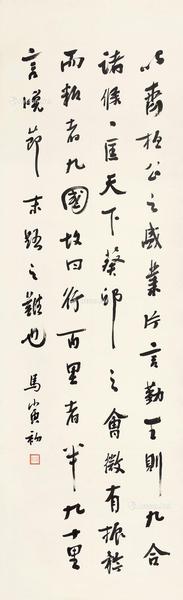 以齐桓公之盛業片言勤王則九合
諸侯一匡天下葵邱之會微有振矜
而叛者九國故曰行百里者半九十里
言晚節末路之難也 馬寅初